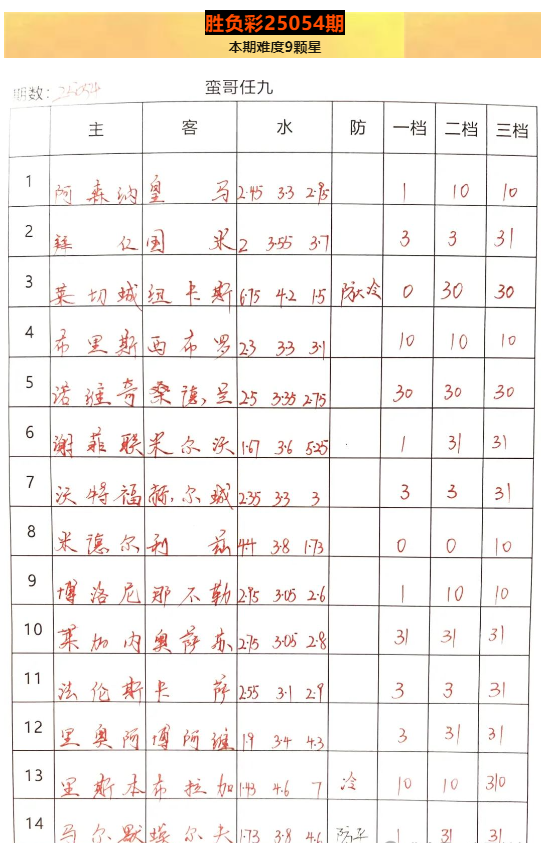 胜负彩25054期
本期难度9颗星
期数: 25054 蛮哥任九
主 客 水 防 一档 二档 三档
1 阿森纳 皇马 2.45 3.3 2.95 1 10 10
2 拜仁 国米 2 3.55 3.7 3 3 31
3 莱切城 纽卡斯 6.75 4.2 1.5 防大冷 0 30 30
4 布里斯 西布罗 2.3 3.3 3.1 10 10 10
5 诺维奇 桑德.兰 2.5 3.35 2.75 30 30 30
6 谢菲联 米尔沃 1.67 3.6 5.25 1 31 31
7 沃特福 赫.尔城 2.35 3.3 3 3 3 31
8 米德尔 利兹 4.4 3.8 1.73 0 0 10
9 博洛尼 那不勒 2.95 3.05 2.6 1 10 10
10 莱加内 奥萨苏 2.75 3.05 2.8 31 31 31
11 法伦斯 卡萨 2.55 3.1 2.9 3 3 31
12 里奥阿 博阿维 1.9 3.4 4.3 3 31 31
13 里斯本 布拉加 1.43 4.6 7 冷 10 10 310
14 马尔默 埃尔夫 1.73 3.8 4.6 防平 1 31 31